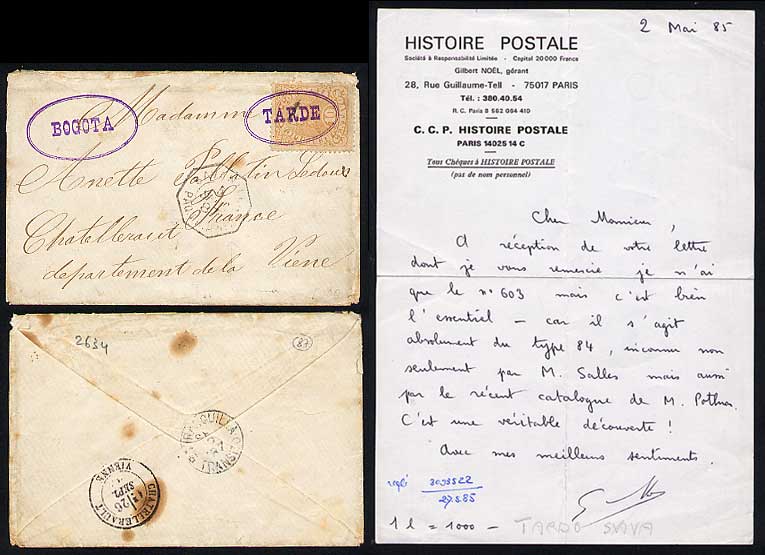 BOGOTA
TARDE
Madamme
Anette
France
Chatelleraut
departement de la Viene
2634
87
CHATELLERAULT
26
SEPT.
VIENNE
2 Mai 85
HISTOIRE POSTALE
Société à Responsabilité Limitée - Capital 20 000 Francs
Gilbert NOËL, gérant
28, Rue Guillaume-Tell - 75017 PARIS
Tél. : 380.40.54
R. C. Paris B 562 064 410
C. C. P. HISTOIRE POSTALE
PARIS 14025 14 C
Tous Chèques à HISTOIRE POSTALE
(pas de nom personnel)
Cher Monsieur,
A réception de votre lettre
dont je vous remercie je n'ai
que le n° 603 mais c'est bien
l'essentiel - car il s'agit
absolument du type 84, inconnu non
seulement par M. Salles mais aussi
par le récent catalogue de M. Pothion.
C'est une véritable découverte !
Avec mes meilleurs sentiments.
réglé
27.5.85
1 l = 1000 -
TARDO